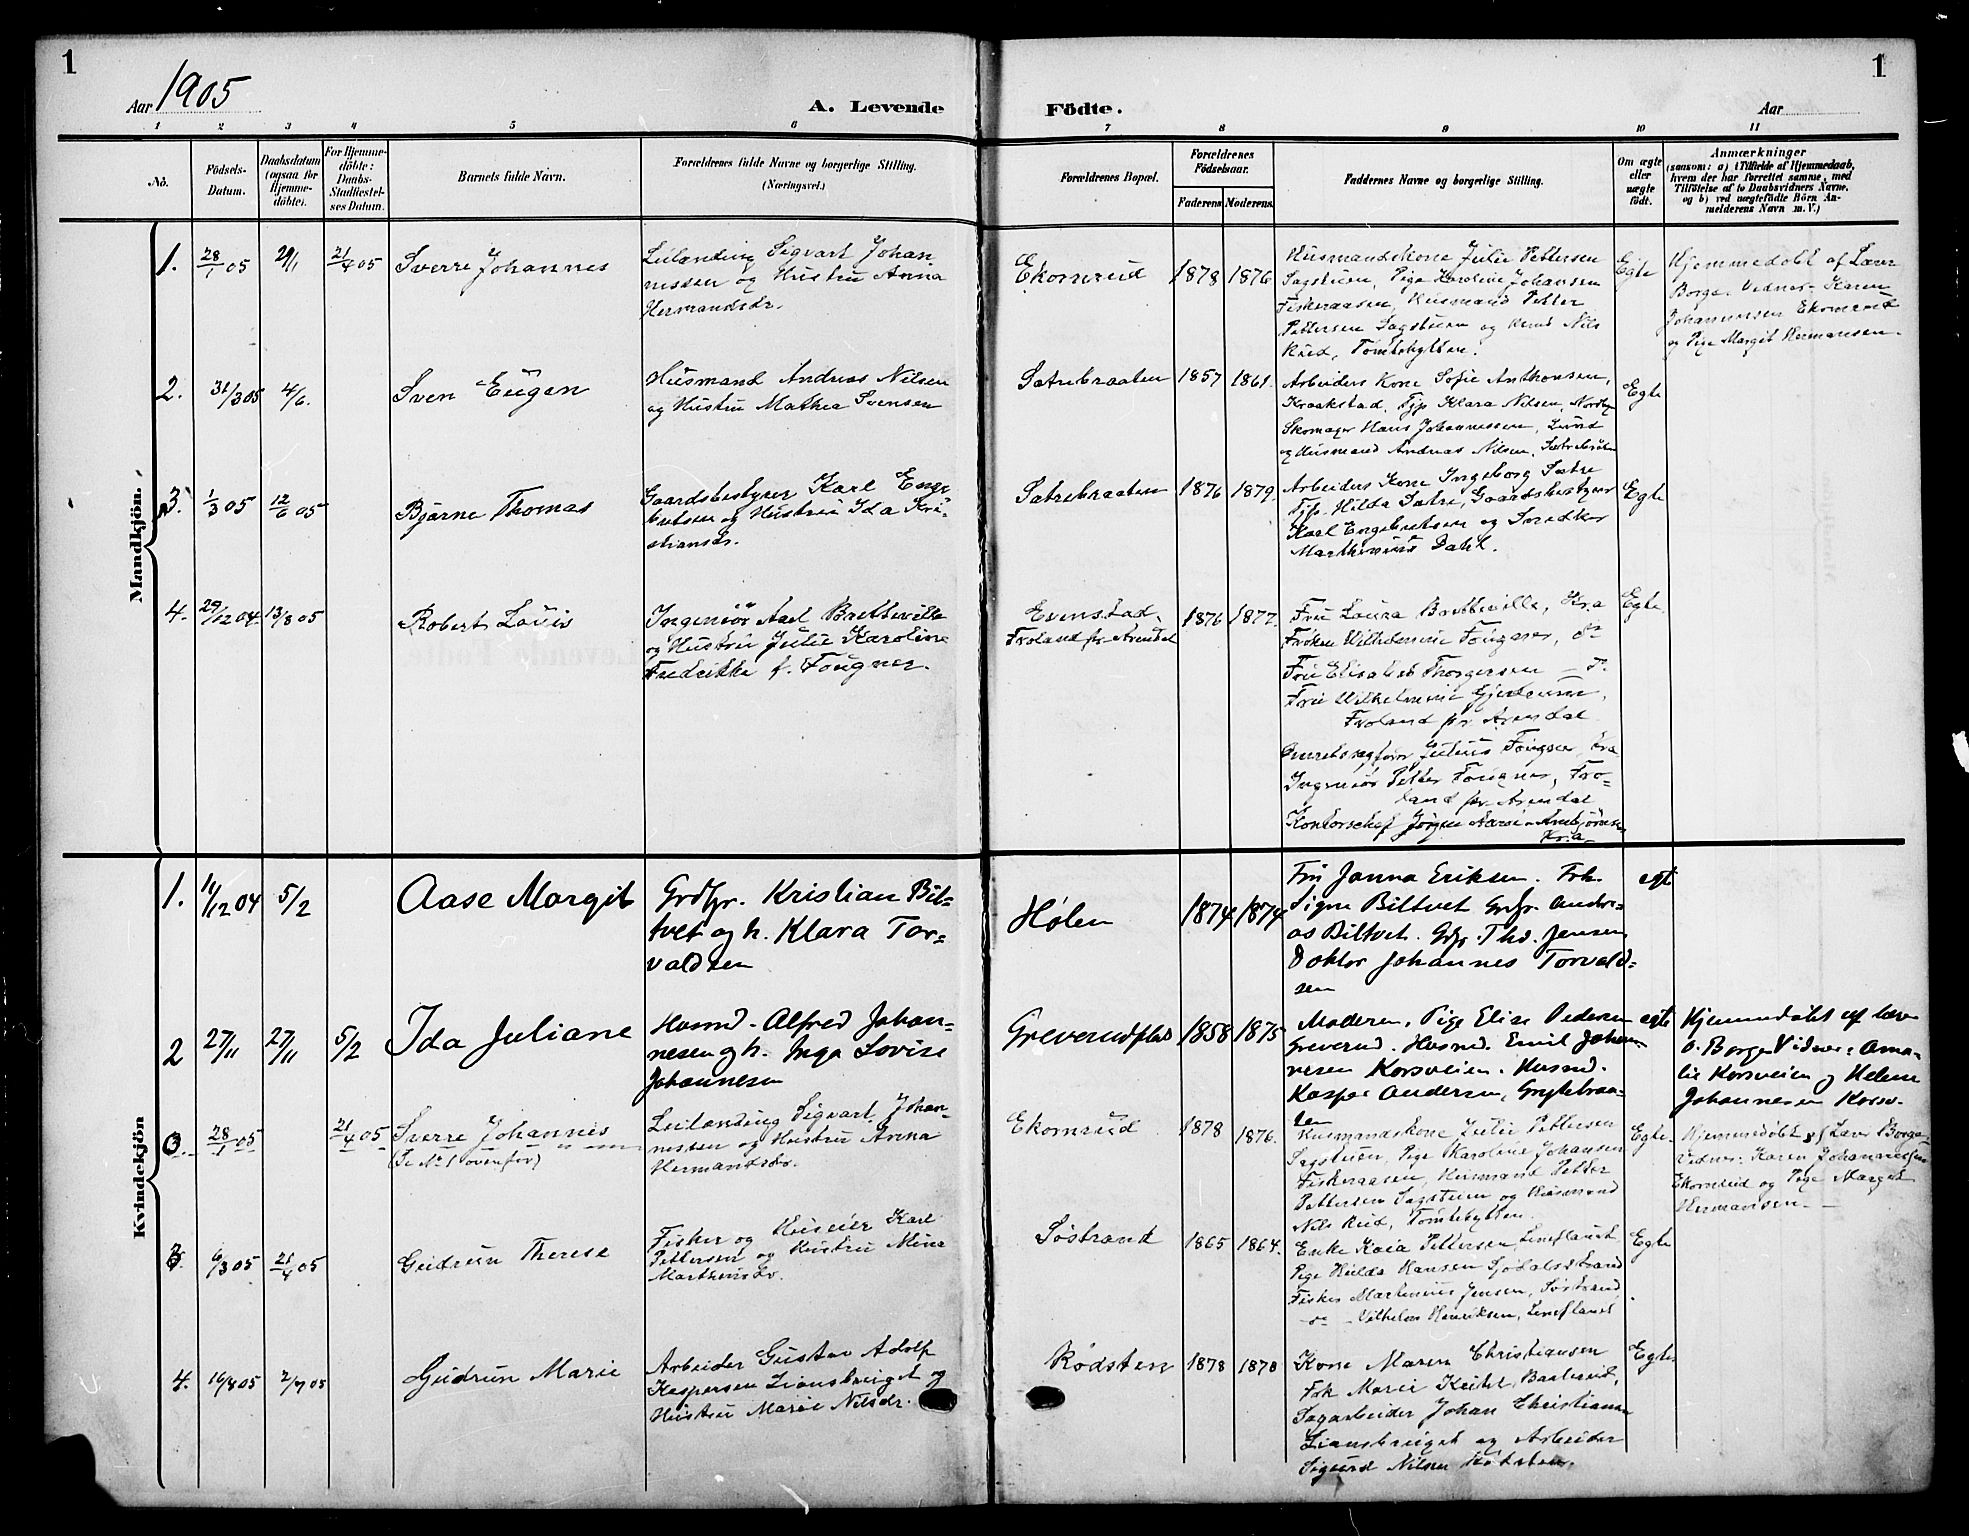 1
Aar 1905
A. Levende
Födte.
Aar
1
1 2 3 4 5 6 7 8 9 10 11
No.
Födsels-Datum.
Daabsdatum (ogsaa for Hjemme-döbte).
For Hjemme-döbte: Daabs-Stadfæstel-ses Datum.
Barnets fulde Navn.
Forældrenes fulde Navne og borgerlige Stilling. (Næringsvei.)
Forældrenes Bopæl.
Forældrenes Födselsaar.
Faderens
Moderens
Faddernes Navne og borgerlige Stilling.
Om ægte eller uægte födt.
Anmærkninger
(saasom: a) i Tilfælde af Hjemmedaab,
hvem der har forrettet samme, med
Tilföielse af to Daabsvidners Navne.
og b) ved uægtefödte Börn An-
melderens Navn m. V.)
Mandkjön.
1. 28/1 05 29/1 21/4 05 Sverre Johannes
Leilænding Sigvart Johan
nessen og Hustru Anna
Hermandsdr.
Ekornrud 1878 1876
Husmandskone Julie Pettersen
Sagstuen, Pige Karoline Johansen
Fiskeraasen, Husmand Petter
Pettersen Sagstuen og Nils
Rud, Tomtehytten.
Egte
Hjemmedöbt af Lærer
Borge. Vidner: Karen
Johannesen Ekornrud
og Pige Margit Hermansen.
2. 31/3 05 4/6. Sven Eugen
Husmand Andreas Nilsen
og Hustru Mathea Svensen
Satrebraaten 1857 1861.
Arbeiders Kone Sofie Anthonsen,
Kraakstad, Tjp Klara Nilsen, Nordby
Skomager Hans Johannessen,
og Husmand Andreas Nilsen, Satrebraaten
Egte
3. 1/3 05 12/6 05 Bjarne Thomas
Gaardsbestyrer Karl Enge
bretsen og Hustru Ida Kri-
stiansdr.
Satrebraaten 1876 1879.
Arbeiders Kone Ingeborg Satre
Tjp. Hilda Satre, Gaardsbestyrer
Karl Engebretsen og Snedker
Marthinius Dahl.
Egte
4. 29/12 04. 13/8 05 Robert Louis
Ingeniör Axel Bretteville
og Hustru Julie Karoline
Fredrikke f. Fougner.
Evenstad,
Froland pr Arendal
1876 1877.
Fru Laura Bretteville, Kra
Fröken Wilhelmine Fougner, do
Fru Elisabet Thorgersen — do
Fru Wilhelmine Gjerdrum,
Froland pr Arendal
Overretssagförer Julius Fougner Kra
Ingeniör Petter Fougner, Fro-
land pr. Arendal
Kontorschef Jörgen Arnbjörnsen
Kra
Egte.
Kvindekjön
1. 11/12 04 5/2 Aase Margit
Grdbr. Kristian Bil-
tvet og h. Klara Tor-
valdsen
Hölen 1874 1874
Fru Janna Eriksen. Frk.
Signe Biltvet Grbr. Andre-
as Biltvet. Grbr. Thv. Jensen
Doktor Johannes Torvald-
sen
egt
2 27/11 27/11 5/2 Ida Juliane
Husmd. Alfred Johan-
nesen og h. Inga Lovise
Johannesen
Greverudplas 1858 1875
Moderen, Pige Elise Pedersen
Greverud. Husmd. Emil Johan-
nesen Korsveien. Husmd.
Kasper Andersen, Grytebraa-
ten
egte
Hjemmedöbt af lære-
r Borge Vidner: Ama-
lie Korsveien og Helene
Johannesen Korsv.
3. 28/1 05 21/4 05 Sverre Johannes
(Se No 1 ovenfor)
Leilænding Sigvart Johan-
nessen og Hustru Anna
Hermandsdr.
Ekornrud 1878 1876.
Husmandskone Julie Pettersen
Sagstuen, Pige Karoline Johansen
Fiskeraasen, Husmand Petter
Pettersen Sagstuen og Husmand
Nils Rud, Tomtehytten.
Egte.
Hjemmedöbt af Lærer Borge.
Vidner: Karen Johannessen
Ekornrud og Pige Margit
Hermansen.
3. 6/3 05 21/4 05 Gudrun Therese
Fisker og Huseier Karl
Pettersen og Hustru Mina
Marthinsdr.
Söstrand 1865 1864.
Enke Kaia Pettersen,
Pige Hulda Hansen Sjödalsstrand
Fisker Martinius Jensen, Söstrand
— do — Vilhelm Henriksen,
Egte
4. 16/4 05 2/7 05 Gudrun Marie
Arbeider Gustav Adolf
Kaspersen Liansbruget og
Hustru Marie Nilsdr.
Rödsten 1878 1878
Kone Maren Christiansen
Frk Marie
Sagarbeider Johan Christiansen
Liansbruget og Arbeider
Sigurd Nilsen Rödsten.
Egte